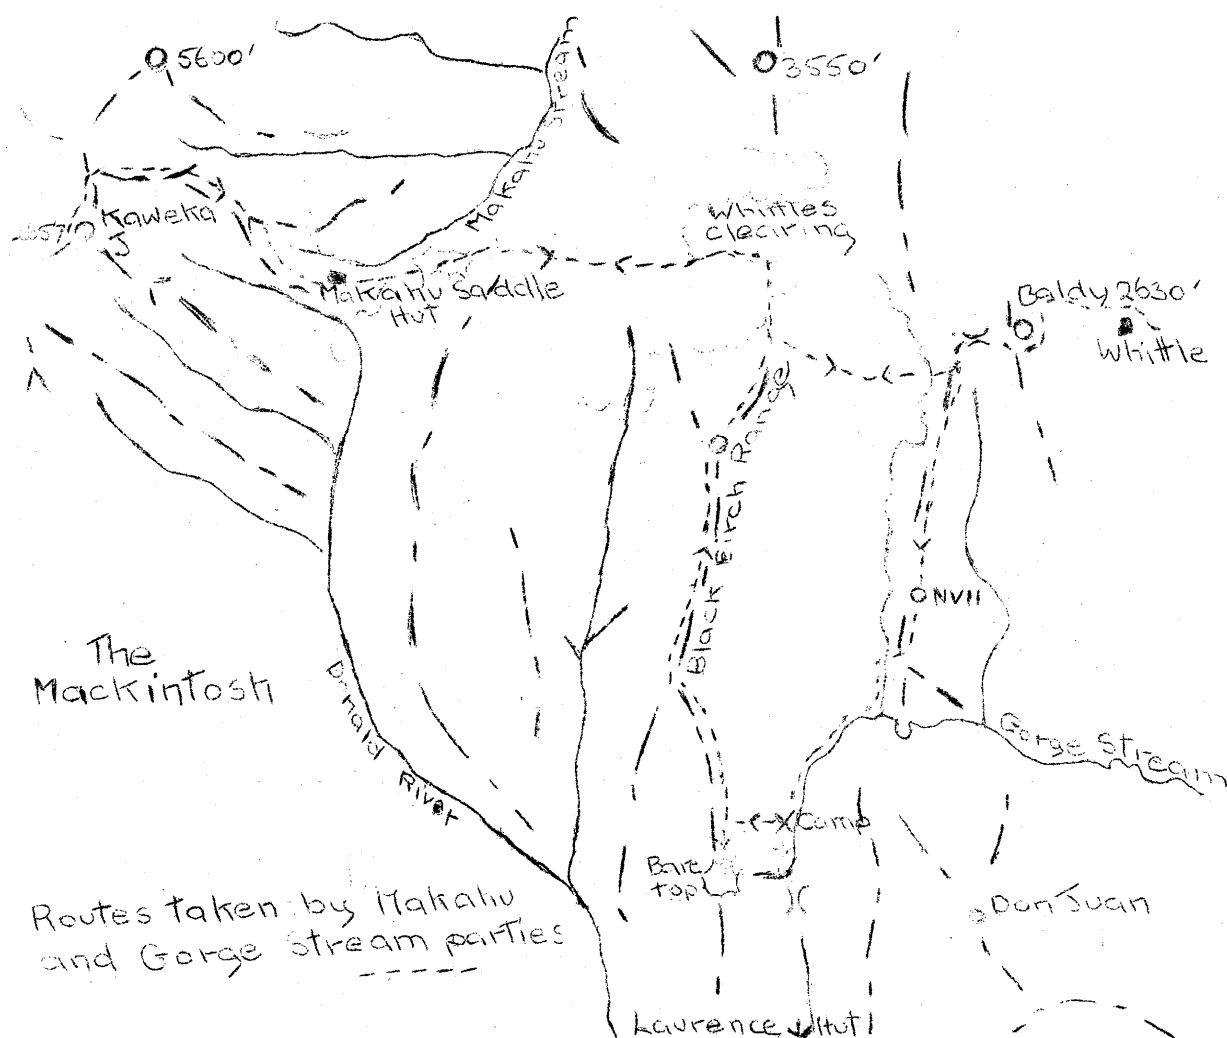 5600'
3550'
Makahu Stream
Kaweka
J
Whittles
clearing
Makahu Saddle
Hut
Baldy 2630'
Whittle
Black Birch Range
NVII
The
Mackintosh
Donald River
Gorge Stream
Camp
Bare
top
Don Juan
Routes taken by Makahu
and Gorge Stream parties
Laurence Hut